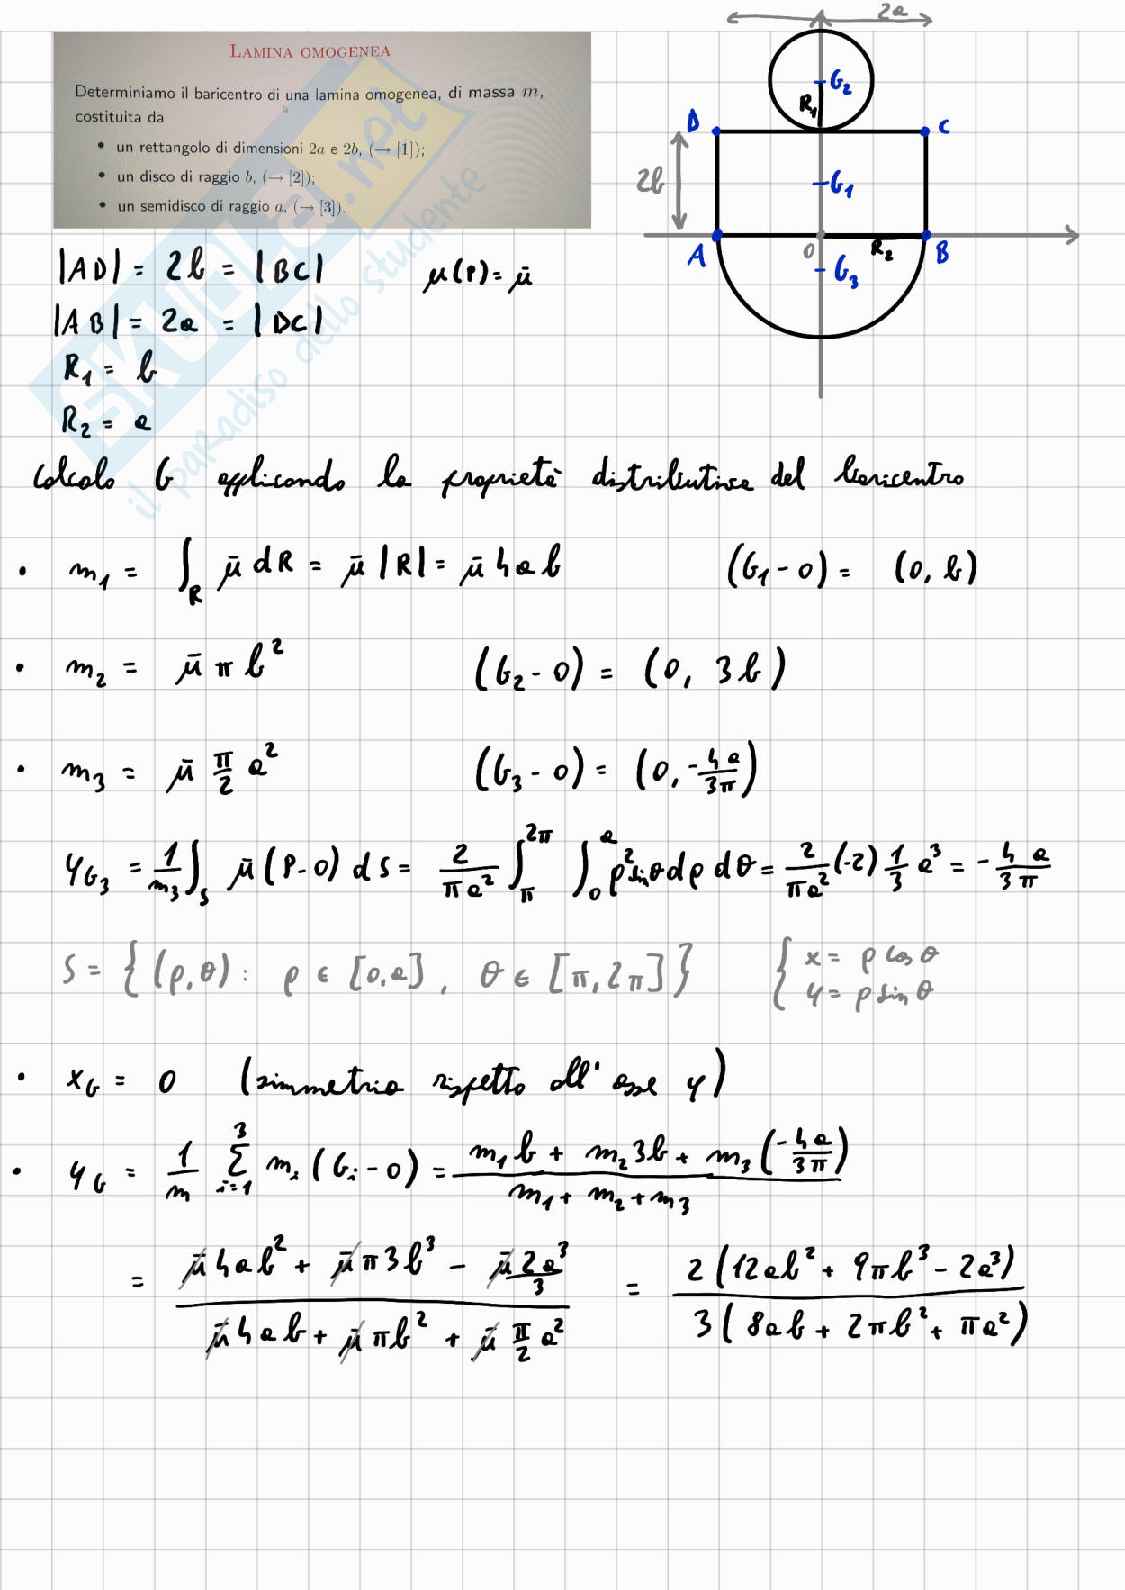 2a
LAMINA OMOGENEA
Determiniamo il baricentro di una lamina omogenea, di massa m,
costituita da
• un rettangolo di dimensioni 2a e 2b, (→ [1]);
• un disco di raggio b, (→ [2]);
• un semidisco di raggio a, (→ [3]).
G₂
R₁
D C
2b
G₁
A O R₂ B
G₃
SKUOLA.net
il paradiso dello studente
|AD| = 2b = |BC| μ(P) = μ̄
|AB| = 2a = |DC|
R₁ = b
R₂ = a
Calcolo G applicando la proprietà distributiva del baricentro
• m₁ = ∫_R μ̄ dR = μ̄ |R| = μ̄ 4ab (G₁-O) = (0, b)
• m₂ = μ̄ π b² (G₂-O) = (0, 3b)
• m₃ = μ̄ π/2 a² (G₃-O) = (0, -4a/3π)
y_G₃ = 1/m₃ ∫_S μ̄ (P-O) dS = 2/πa² ∫_π^2π ∫_0^a ρ² sinθ dρ dθ = 2/πa² (-2) 1/3 a³ = - 4a/3π
S = { (ρ, θ) : ρ ∈ [0, a], θ ∈ [π, 2π] } { x = ρ cos θ
y = ρ sin θ
• x_G = 0 (simmetria rispetto all' asse y)
• y_G = 1/m Σ_{i=1}^3 mᵢ (Gᵢ-O) = m₁b + m₂3b + m₃(-4a/3π) / m₁ + m₂ + m₃
= μ̄4ab² + μ̄π3b³ - μ̄2a³/3 / μ̄4ab + μ̄πb² + μ̄ π/2 a² = 2(12ab² + 9πb³ - 2a³) / 3(8ab + 2πb² + πa²)